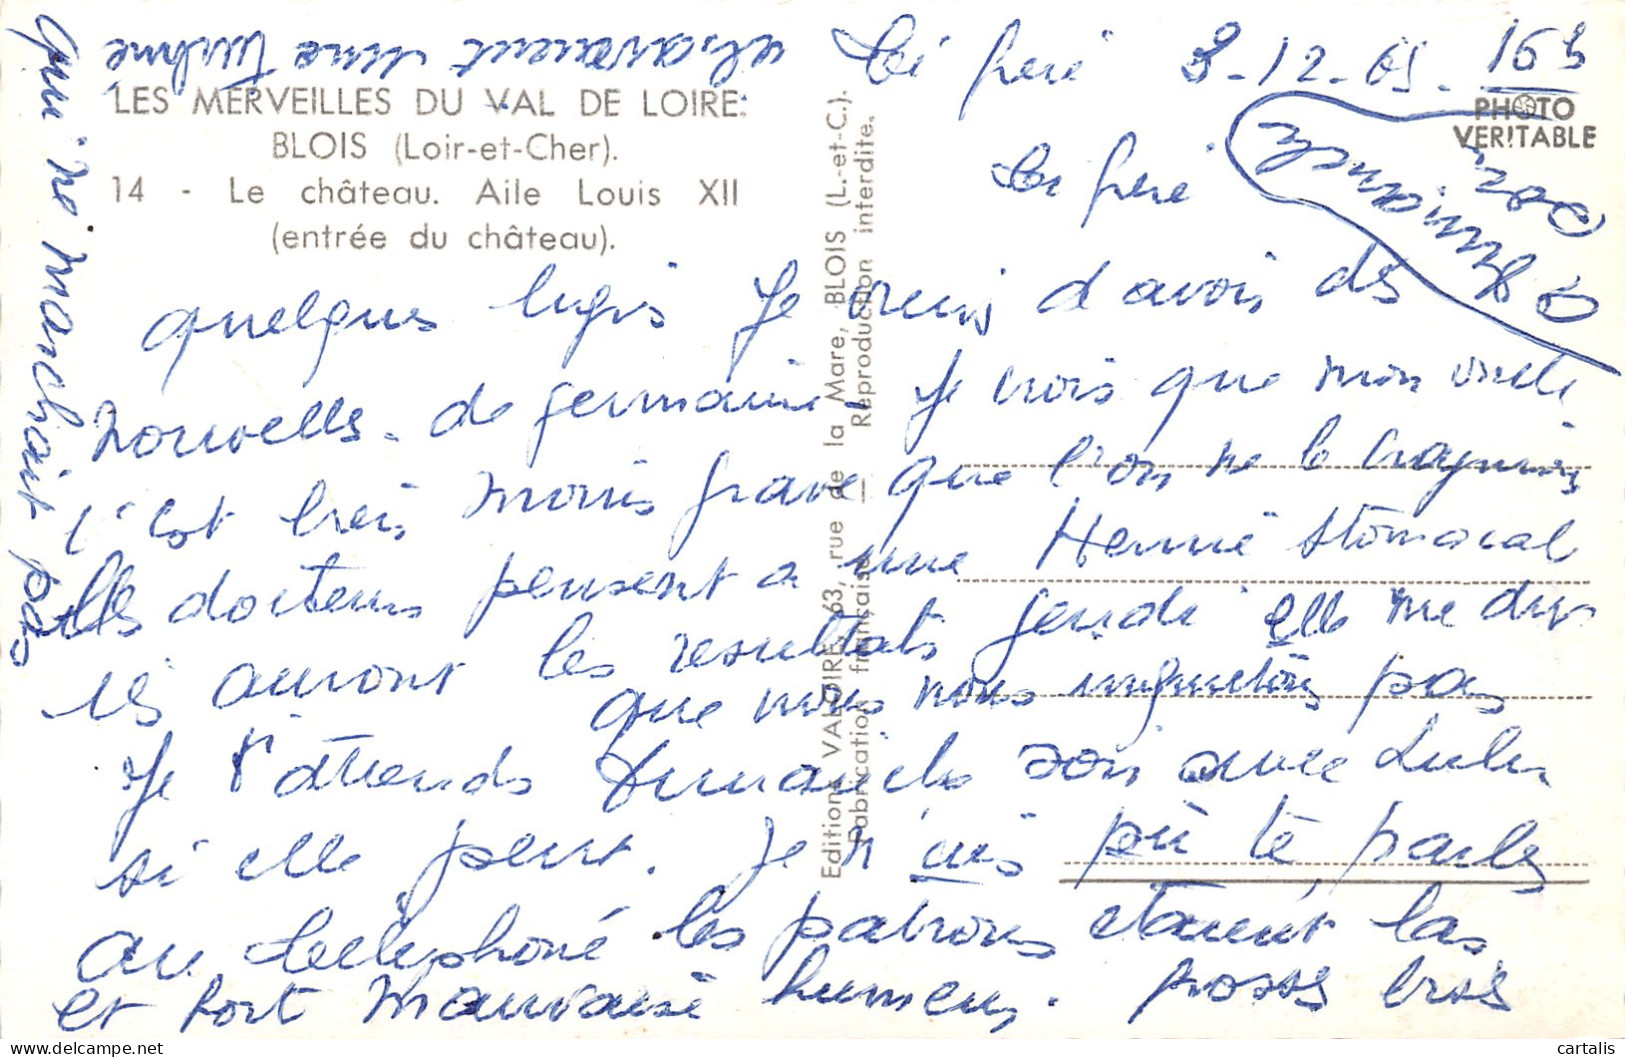 Ti frere 8-12-65. 16h
LES MERVEILLES DU VAL DE LOIRE:
BLOIS (Loir-et-Cher).
14 - Le château. Aile Louis XII
(entrée du château).
PHOTO
VERITABLE
Ti frere
quelques lignes Je viens d avoir des
nouvelles de germaine Je crois que mon oncle
c'est très moins grave que l'on ne le
docteurs pensent a une Hernie stomacal
ils auront les resultats jeudi elle me
que nous nous pas
Je t'attends soir avec Lulu
si elle peut. Je n'ais pû te parler
au telephone les patrons etaient las
et fort mauvaise humeur. Gross
et avaient une turbine
qui ne marchait pas
Editions VALOIRE, 63, rue de la Mare, BLOIS (L.-et-C.).
Fabrication française — Reproduction interdite.
cartalis